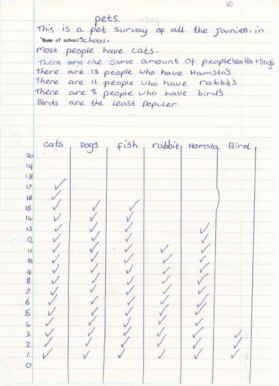 pets.
This is a pet survey of all the Jouniers. in
Name of school School.
Most people have cats.
There are the same amount of people with
There are 13 people who have Hamsta's
There are 11 people who have rabbits
There are 3 people who have birds
Birds are the least populer
cats Dogs fish rabbits Hamsta Bird
20
19
18
17
16
15
14
13
12
11
10
9
8
7
6
5
4
3
2
1
0